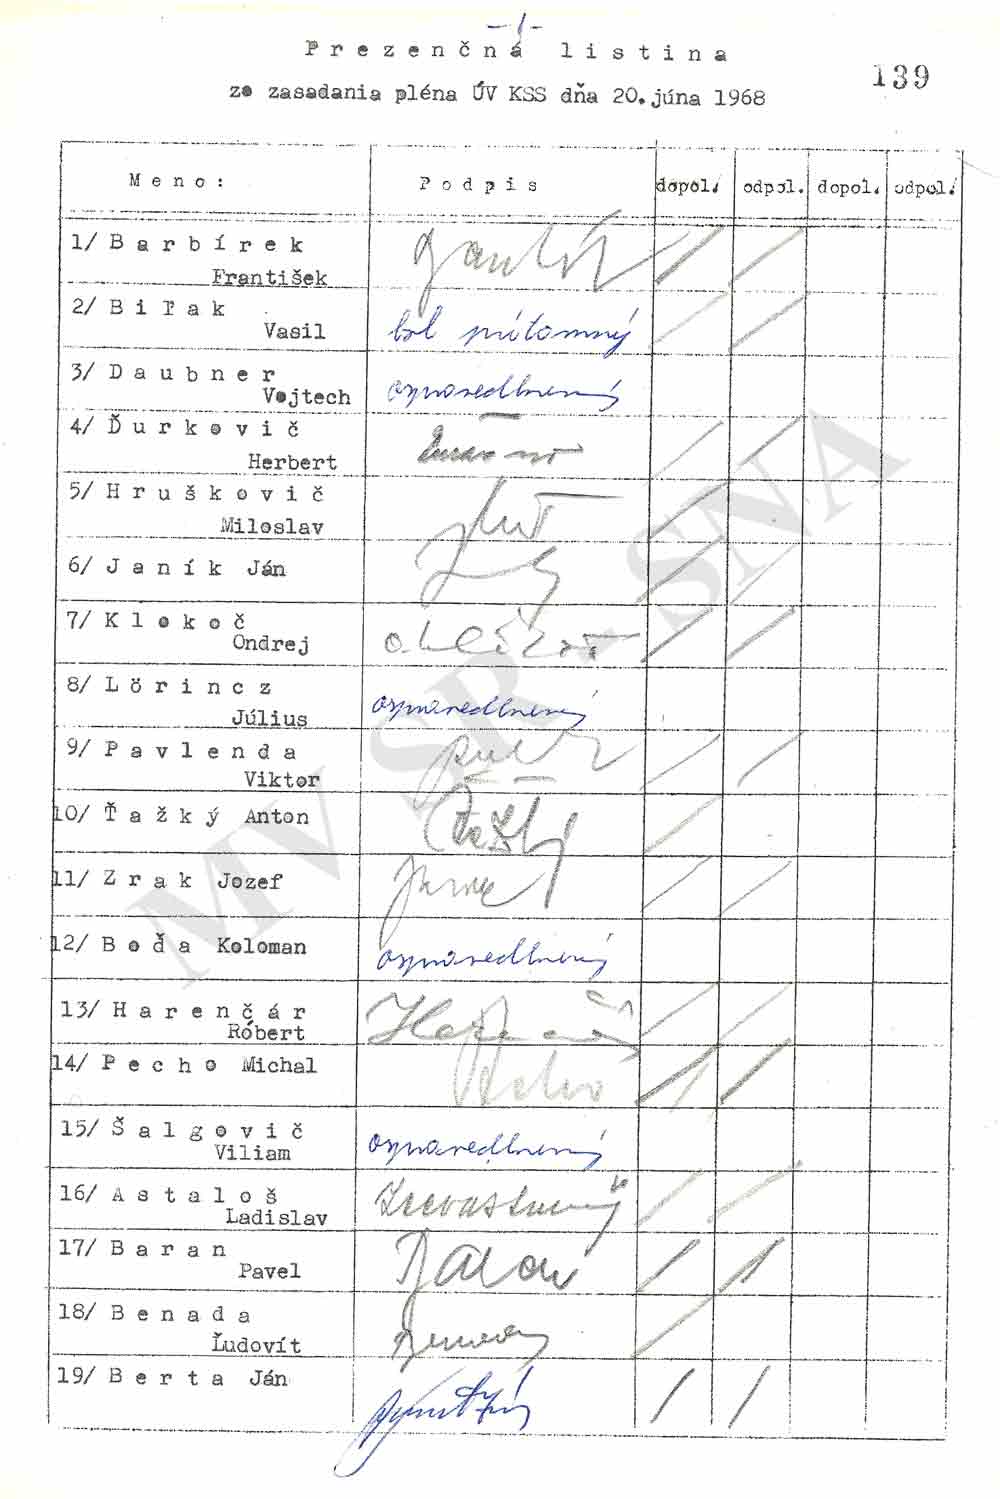 - 1 -
Prezenčná listina
139
zo zasadania pléna ÚV KSS dňa 20.júna 1968
Meno: Podpis dopol. odpol. dopol. odpol.
1/ Barbírek
František
2/ Biľak
Vasil bol prítomný
3/ Daubner
Vojtech ospravedlnený
4/ Ďurkovič
Herbert
5/ Hruškovič
Miloslav
6/ Janík Ján
7/ Klokoč
Ondrej
8/ Lörincz
Július ospravedlnený
9/ Pavlenda
Viktor
10/ Ťažký Anton Ťažký
11/ Zrak Jozef
12/ Boďa Koloman ospravedlnený
13/ Harenčár
Róbert
14/ Pecho Michal Pecho
15/ Šalgovič
Viliam ospravedlnený
16/ Astaloš
Ladislav
17/ Baran
Pavel Baran
18/ Benada
Ľudovít
19/ Berta Ján
MV SR - SNA